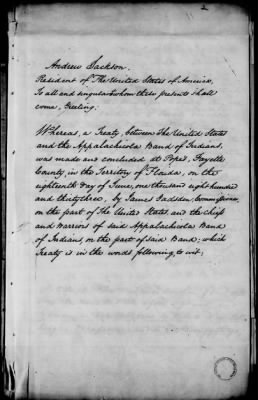 Andrew Jackson,
President of The United States of America,
To all and singular to whom these presents shall
come, Greeting:
Whereas, a Treaty, between The United States
and the Appalachicola Band of Indians,
was made and concluded at Pope's, Fayette
County, in the Territory of Florida, on the
eighteenth day of June, one thousand eight hundred
and thirty three, by James Gadsden, Commissioner,
on the part of The United States and the Chiefs
and Warriors of said Appalachicola Band
of Indians, on the part of said Band; which
Treaty is in the words following, to wit;